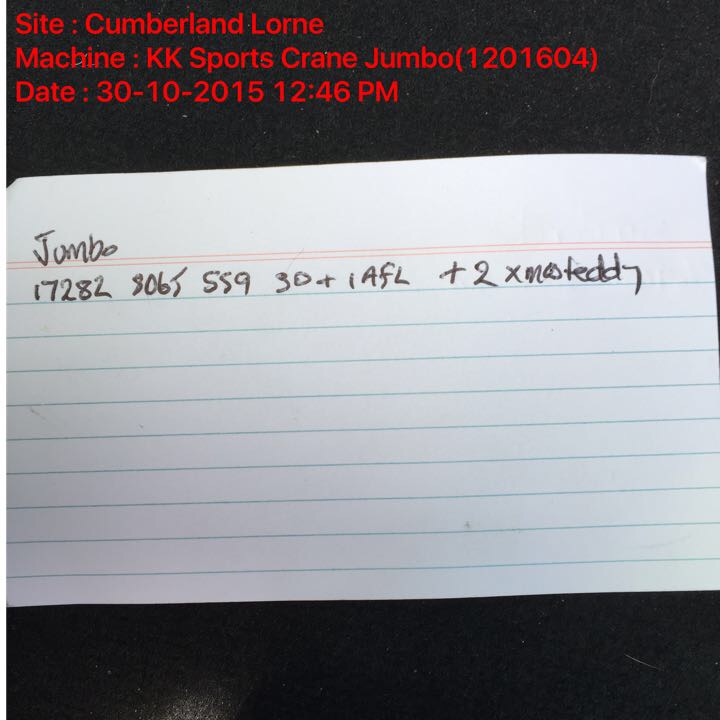 Site : Cumberland Lorne
Machine : KK Sports Crane Jumbo(1201604)
Date : 30-10-2015 12:46 PM
Jumbo
17282 8065 559 30+ 1 AFL + 2 xmasteddy